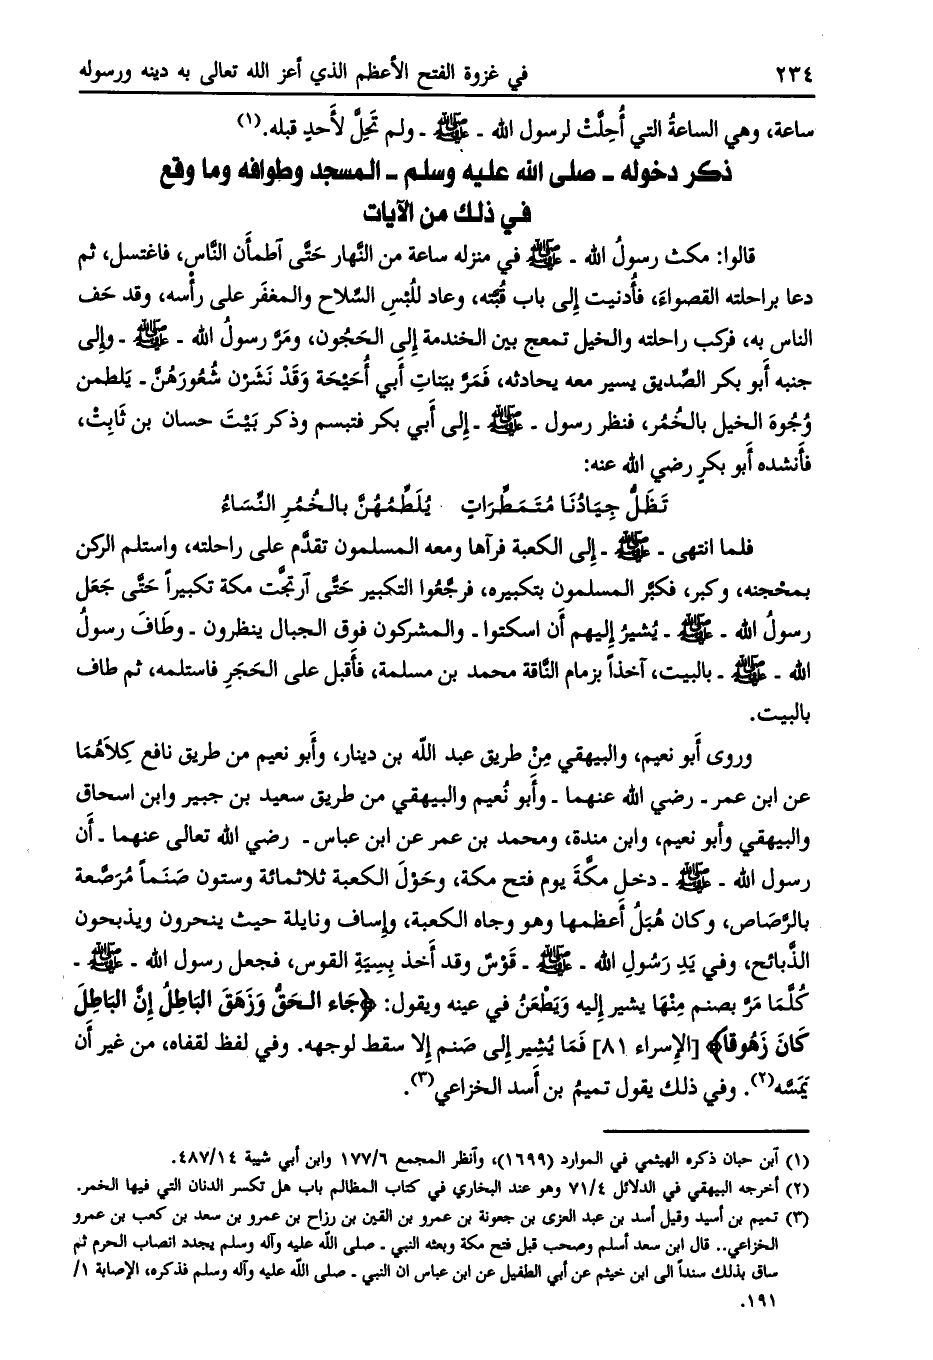 ٢٣٤ في غزوة الفتح الأعظم الذي أعز الله تعالى به دينه ورسوله
ساعة، وهي الساعةُ التي أُحِلَّتْ لرسول الله ـ ﷺ ـ ولم تَحِلَّ لأَحدٍ قبله.(١)
ذكر دخوله ـ صلى الله عليه وسلم ـ المسجد وطوافه وما وقع
في ذلك من الآيات
قالوا: مكث رسولُ الله ـ ﷺ في منزله ساعة من النَّهار حَتَّى آطمأَن النَّاس، فاغتسل، ثم
دعا براحلته القصواءَ، فأُدنيت إلى باب قُبَّته، وعاد للُبْسِ السِّلاح والمغفَر على رأسه، وقد حَف
الناس به، فركب راحلته والخيل تمعج بين الخندمة إلى الحَجُون، ومَرَّ رسولُ الله ـ ﷺ ـ وإلى
جنبه أَبو بكر الصِّديق يسير معه يحادثه، فَمَرَّ بِبَناتِ أَبي أُحَيْحَة وَقَدْ نَشَرْن شُعُورَهُنَّ ـ يَلطمن
وُجُوهَ الخيل بالخُمُر، فنظر رسول ـ ﷺ ـ إلى أَبي بكر فتبسم وذكر بَيْتَ حسان بن ثَابِتْ،
فأَنشده أَبو بكرٍ رضي الله عنه:
تَظَلُّ جِيَادُنَا مُتَمَطِّرَاتٍ يُلَطِّمُهُنَّ بِالخُمُرِ النِّسَاءُ
فلما انتهى ـ ﷺ ـ إلى الكعبة فرآها ومعه المسلمون تقدَّم على راحلته، واستلم الركن
بمحْجنه، وكبر، فكبَّر المسلمون بتكبيره، فرجَّعوا التكبير حَتَّى آرتجَّت مكة تكبيراً حَتَّى جَعَل
رسولُ الله ـ ﷺ ـ يُشيرُ إليهم أَن اسكتوا ـ والمشركون فوق الجبال ينظرون ـ وطَافَ رسولُ
الله ـ ﷺ ـ بالبيت، آخذاً بزمام النَّاقة محمد بن مسلمة، فأَقبل على الحَجَرِ فاستلمه، ثم طاف
بالبيت.
وروى أَبو نعيم، والبيهقي مِنْ طريق عبد اللّه بن دينار، وأَبو نعيم من طريق نافع كِلاَهُمَا
عن ابن عمر ـ رضي الله عنهما ـ وأَبو نُعيم والبيهقي من طريق سعيد بن جبير وابن اسحاق
والبيهقي وأَبو نعيم، وابن مندة، ومحمد بن عمر عن ابن عباس ـ رضي الله تعالى عنهما ـ أَن
رسول الله ـ ﷺ ـ دخل مكَّةَ يوم فتح مكة، وحَوْلَ الكعبة ثلاثمائة وستون صَنَماً مُرَصَّعة
بالرَّصَاص، وكان هُبَلُ أَعظمها وهو وجاه الكعبة، وإساف ونايلة حيث ينحرون ويذبحون
الذَّبائح، وفي يَدِ رَسُولِ الله ـ ﷺ ـ قَوْسٌ وقد أَخذ بِسِيَةِ القوس، فجعل رسول الله ـ ﷺ ـ
كُلَّمَا مَرَّ بصنم مِنْهَا يشير إليه وَيَطْعَنُ في عينه ويقول: ﴿جَاء الحَقُّ وَزَهَقَ البَاطِلُ إنَّ البَاطِلَ
كَانَ زَهُوقا﴾ [الإسراء ٨١] فَمَا يُشِير إلى صَنم إلا سقط لوجهه. وفي لفظ لقفاه، من غير أَن
يَمَسَّه(٢). وفي ذلك يقول تميمُ بن أَسد الخزاعي(٣).
(١) آبن حبان ذكره الهيثمي في الموارد (١٦٩٩)، وآنظر المجمع ١٧٧/٦ وابن أبي شيبة ٤٨٧/١٤.
(٢) أخرجه البيهقي في الدلائل ٧١/٤ وهو عند البخاري في كتاب المظالم باب هل تكسر الدنان التي فيها الخمر.
(٣) تميم بن أسيد وقيل أسد بن عبد العزى بن جعونة بن عمرو بن القين بن رزاح بن عمرو بن سعد بن كعب بن عمرو
الخزاعي.. قال ابن سعد أسلم وصحب قبل فتح مكة وبعثه النبي ـ صلى الله عليه وآله وسلم يجدد انصاب الحرم ثم
ساق بذلك سنداً الى ابن خيثم عن أبي الطفيل عن ابن عباس ان النبي ـ صلى الله عليه وآله وسلم فذكره، الإصابة ١/
١٩١.